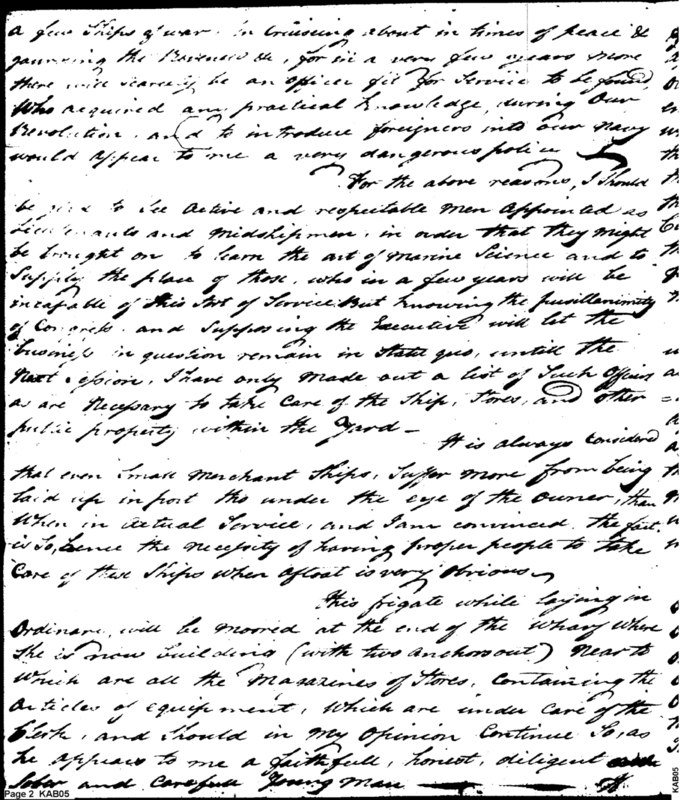 a few Ships of war. in Cruising about in times of peace &
the Revenue &c, for in a very few years more
there will scarcely be an officer fit for Service to be found,
Who acquired any practical Knowledge, during Our
Revolution. and to introduce foreigners into our Navy
would appear to me a very dangerous police
For the above reasons, I Should
be to See Active and respectable Men Appointed as
Lieutenants and Midshipmen, in order that they might
be brought on to learn the art of Marine Science and to
Supply the place of those, who in a few years will be
incapable of this Sort of Service But Knowing the pusillanimity
of Congress. and Supposing the Executive will let the
business in question remain in State quo, untill the
Next Session, I have only Made out a list of Such Officers
as are Necessary to take Care of the Ship, Stores, and other =
public property within the Yard —
It is always Considered
that even Small Merchant Ships, Suffer More from being
laid up in port tho under the eye of the Owner, than
When in Actual Service, and I am convinced, the fact
is So, hence the Necessity of having proper people to take
Care of these Ships when afloat is very Obvious
This frigate while laying in
Ordinary, will be Moored at the end of the Wharf Where
She is now building (with two Anchors out) Near to
Which are all the Magazines of Stores, Containing the
Articles of equipment, Which are under Care of the
Clerk, and Should in My Opinion Continue So, as
he appears to me a faithfull, honest, diligent
Sober and Carefull Young Man
Page 2 KAB05
KAB05